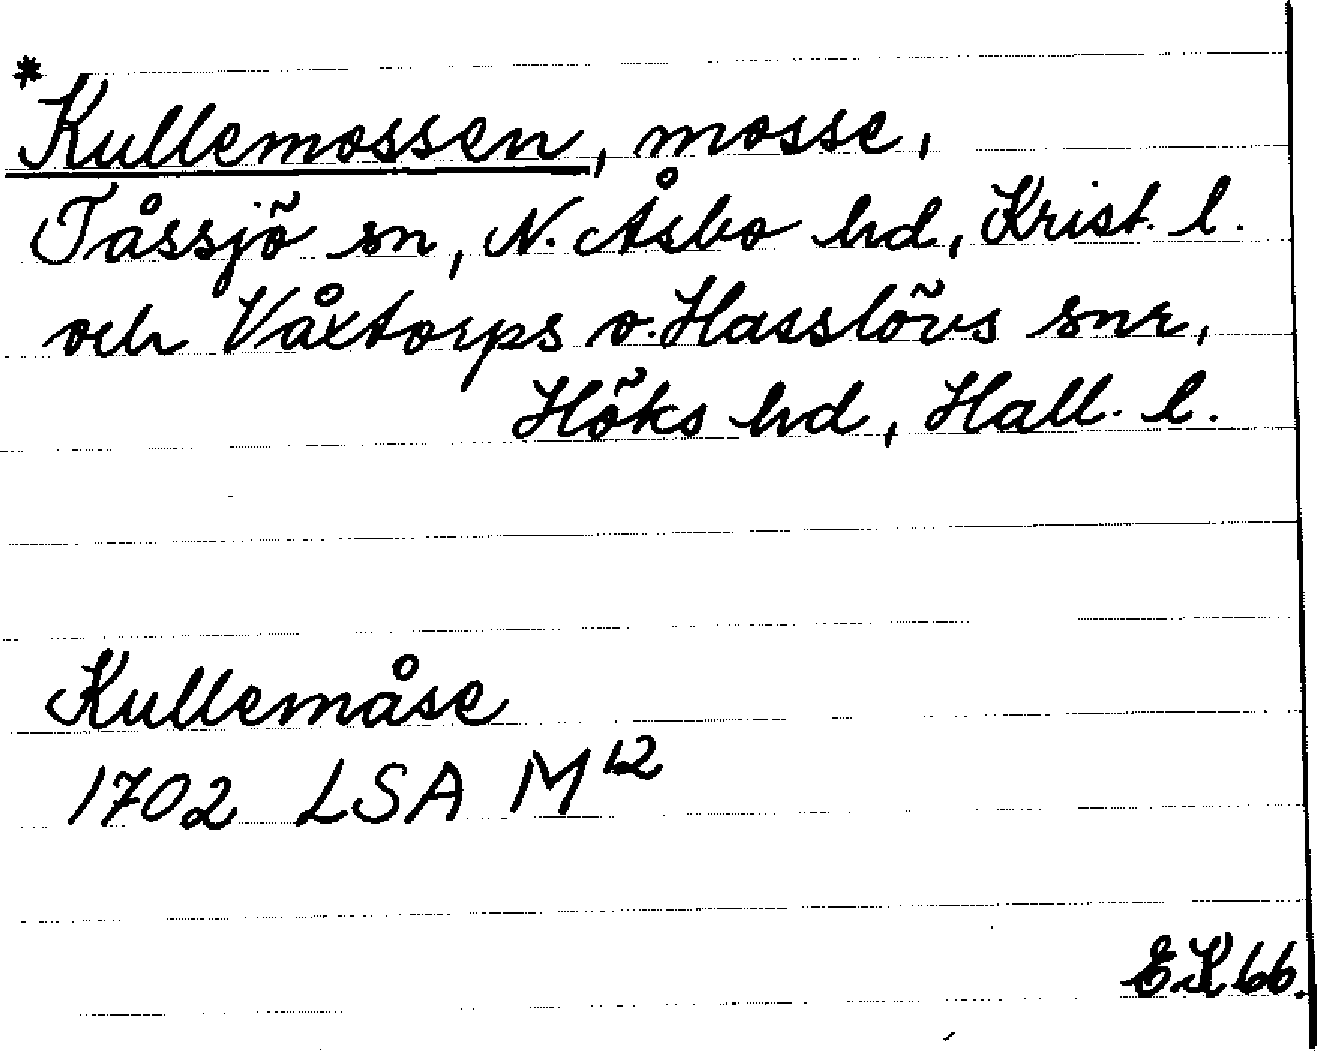 *Kullemossen, mosse,
Tåssjö sn, N. Åsbo hd, Krist. l.
och Våxtorps o. Hasslövs snr,
Höks hd, Hall. l.
Kullemåse
1702 LSA M62
EK 66.